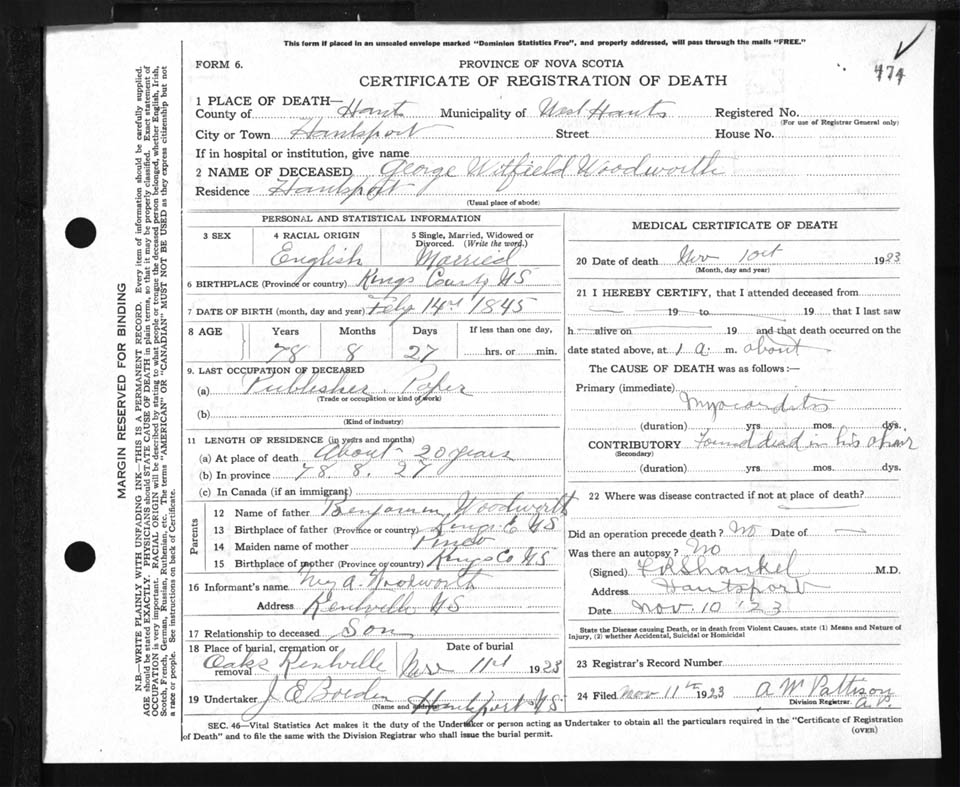 This form if placed in an unsealed envelope marked "Dominion Statistics Free", and properly addressed, will pass through the mails "FREE."
474
FORM 6.
PROVINCE OF NOVA SCOTIA
CERTIFICATE OF REGISTRATION OF DEATH
1 PLACE OF DEATH—
County of Hants Municipality of West Hants Registered No.
(For use of Registrar General only)
City or Town Hantsport Street House No.
If in hospital or institution, give name
2 NAME OF DECEASED George Witfield Woodworth
Residence Hantsport
(Usual place of abode)
PERSONAL AND STATISTICAL INFORMATION
3 SEX
4 RACIAL ORIGIN
English
5 Single, Married, Widowed or Divorced. (Write the word.)
Married
6 BIRTHPLACE (Province or country) Kings County NS
7 DATE OF BIRTH (month, day and year) Feby 14th 1845
8 AGE Years Months Days If less than one day,
78 8 27 hrs. or min.
9. LAST OCCUPATION OF DECEASED
(a) Publisher Paper
(Trade or occupation or kind of work)
(b)
(Kind of industry)
11 LENGTH OF RESIDENCE (in years and months)
(a) At place of death About 20 years
(b) In province 78. 8. 27
(c) In Canada (if an immigrant)
Parents
12 Name of father Benjamin Woodworth
13 Birthplace of father (Province or country) Kings Co NS
14 Maiden name of mother Pineo
15 Birthplace of mother (Province or country) Kings Co NS
16 Informant's name A. Woodworth
Address Kentville NS
17 Relationship to deceased Son
18 Place of burial, cremation or removal Date of burial
Oaks Kentville Nov 11th 1923
19 Undertaker J E Borden
(Name and address) Hantsport NS
MEDICAL CERTIFICATE OF DEATH
20 Date of death Nov 10th 1923
(Month, day and year)
21 I HEREBY CERTIFY, that I attended deceased from
19 to 19 that I last saw
h alive on 19 and that death occurred on
date stated above, at 1 a. m. about
The CAUSE OF DEATH was as follows:—
Primary (immediate)
Myocarditis
(duration) yrs. mos. dys.
CONTRIBUTORY Found dead in his chair
(Secondary)
(duration) yrs. mos. dys.
22 Where was disease contracted if not at place of death?
Did an operation precede death? No Date of
Was there an autopsy? No
(Signed) Shankel M.D.
Address Hantsport
Date Nov. 10 '23
State the Disease causing Death, or in death from Violent Causes, state (1) Means and Nature of Injury, (2) whether Accidental, Suicidal or Homicidal
23 Registrar's Record Number
24 Filed Nov 11th 1923 A W Pattison
Division Registrar.
SEC. 46—Vital Statistics Act makes it the duty of the Undertaker or person acting as Undertaker to obtain all the particulars required in the "Certificate of Registration
of Death" and to file the same with the Division Registrar who shall issue the burial permit.
(OVER)
MARGIN RESERVED FOR BINDING
N.B.—WRITE PLAINLY WITH UNFADING INK—THIS IS A PERMANENT RECORD. Every item of information should be carefully supplied.
AGE should be stated EXACTLY. PHYSICIANS should STATE CAUSE OF DEATH in plain terms, so that it may be properly classified. Exact statement of
OCCUPATION is very important. RACIAL ORIGIN will be described by stating to what people or tongue the deceased person belonged, whether English, Irish,
Scotch, French, German, Russian, Ruthenian, etc. The terms "AMERICAN" OR "CANADIAN" MUST NOT BE USED as they express citizenship but not
a race or people. See instructions on back of Certificate.